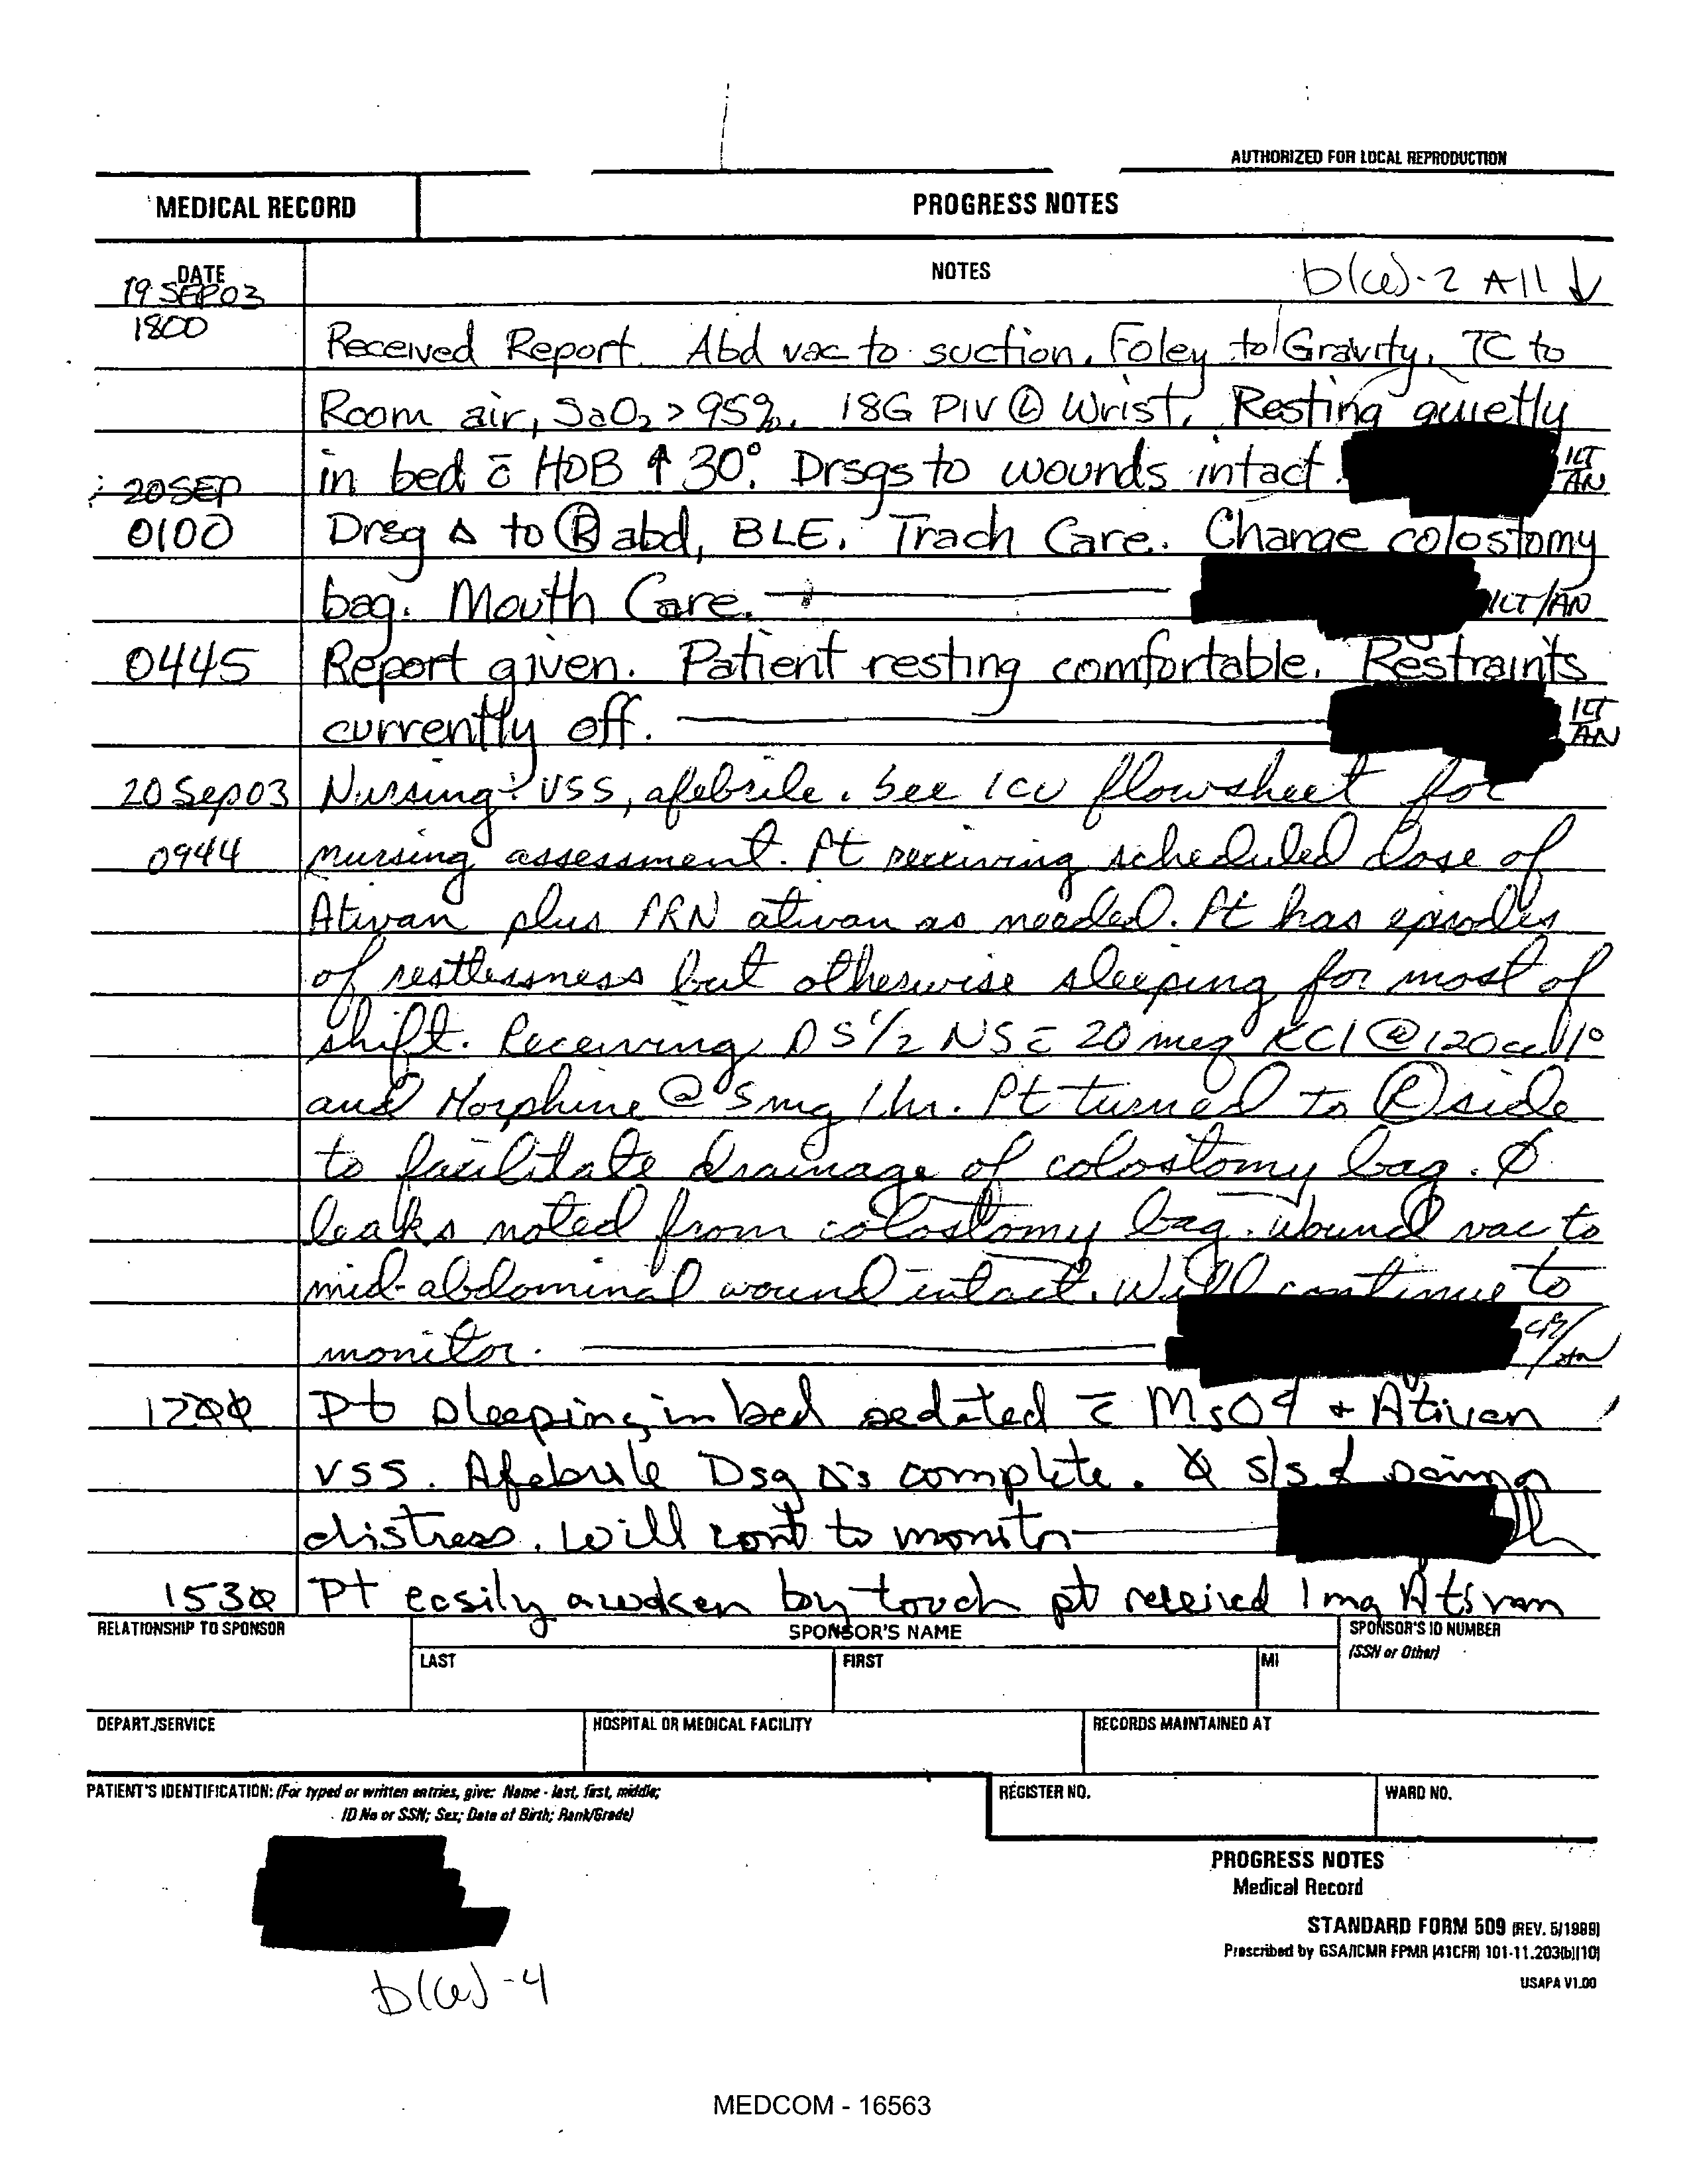 AUTHORIZED FOR LOCAL REPRODUCTION
MEDICAL RECORD
PROGRESS NOTES
DATE
NOTES
b(6)-2 All ↓
19 SEP03
1800
Received Report. Abd vac to suction. Foley to Gravity. TC to
Room air, SaO2 > 95%. 18G PIV Ⓛ Wrist. Resting quietly
in bed c̄ HOB ↑ 30°. Drsgs to wounds intact. 1LT AN
20SEP
0100 Drsg Δ to Ⓡ abd, BLE. Trach Care. Change colostomy
bag. Mouth Care. 1LT/AN
0445 Report given. Patient resting comfortable. Restraints
currently off. 1LT AN
20Sep03 Nursing: VSS, afebrile. See ICU flowsheet for
0944 nursing assessment. Pt receiving scheduled dose of
Ativan plus PRN ativan as needed. Pt has episodes
of restlessness but otherwise sleeping for most of
shift. Receiving D5 1/2 NS c̄ 20 meq KCl @ 120cc/1°
and Morphine @ 5mg/hr. Pt turned to Ⓡ side
to facilitate drainage of colostomy bag. Ø
leaks noted from colostomy bag. Wound vac to
mid-abdominal wound intact. Will continue to
monitor. CPT/AN
1200 Pt sleeping in bed sedated c̄ MsO4 + Ativan
VSS. Afebrile Dsg Δ's complete. Ø s/s of pain or
distress. Will cont to monitor
1530 Pt easily awoken by touch pt received 1mg Ativan
RELATIONSHIP TO SPONSOR
SPONSOR'S NAME
SPONSOR'S ID NUMBER
(SSN or Other)
LAST
FIRST
MI
DEPART./SERVICE
HOSPITAL OR MEDICAL FACILITY
RECORDS MAINTAINED AT
PATIENT'S IDENTIFICATION: (For typed or written entries, give: Name - last, first, middle;
ID No or SSN; Sex; Date of Birth; Rank/Grade)
REGISTER NO.
WARD NO.
PROGRESS NOTES
Medical Record
STANDARD FORM 509 (REV. 5/1999)
Prescribed by GSA/ICMR FPMR (41CFR) 101-11.203(b)(10)
USAPA V1.00
b(6)-4
MEDCOM - 16563